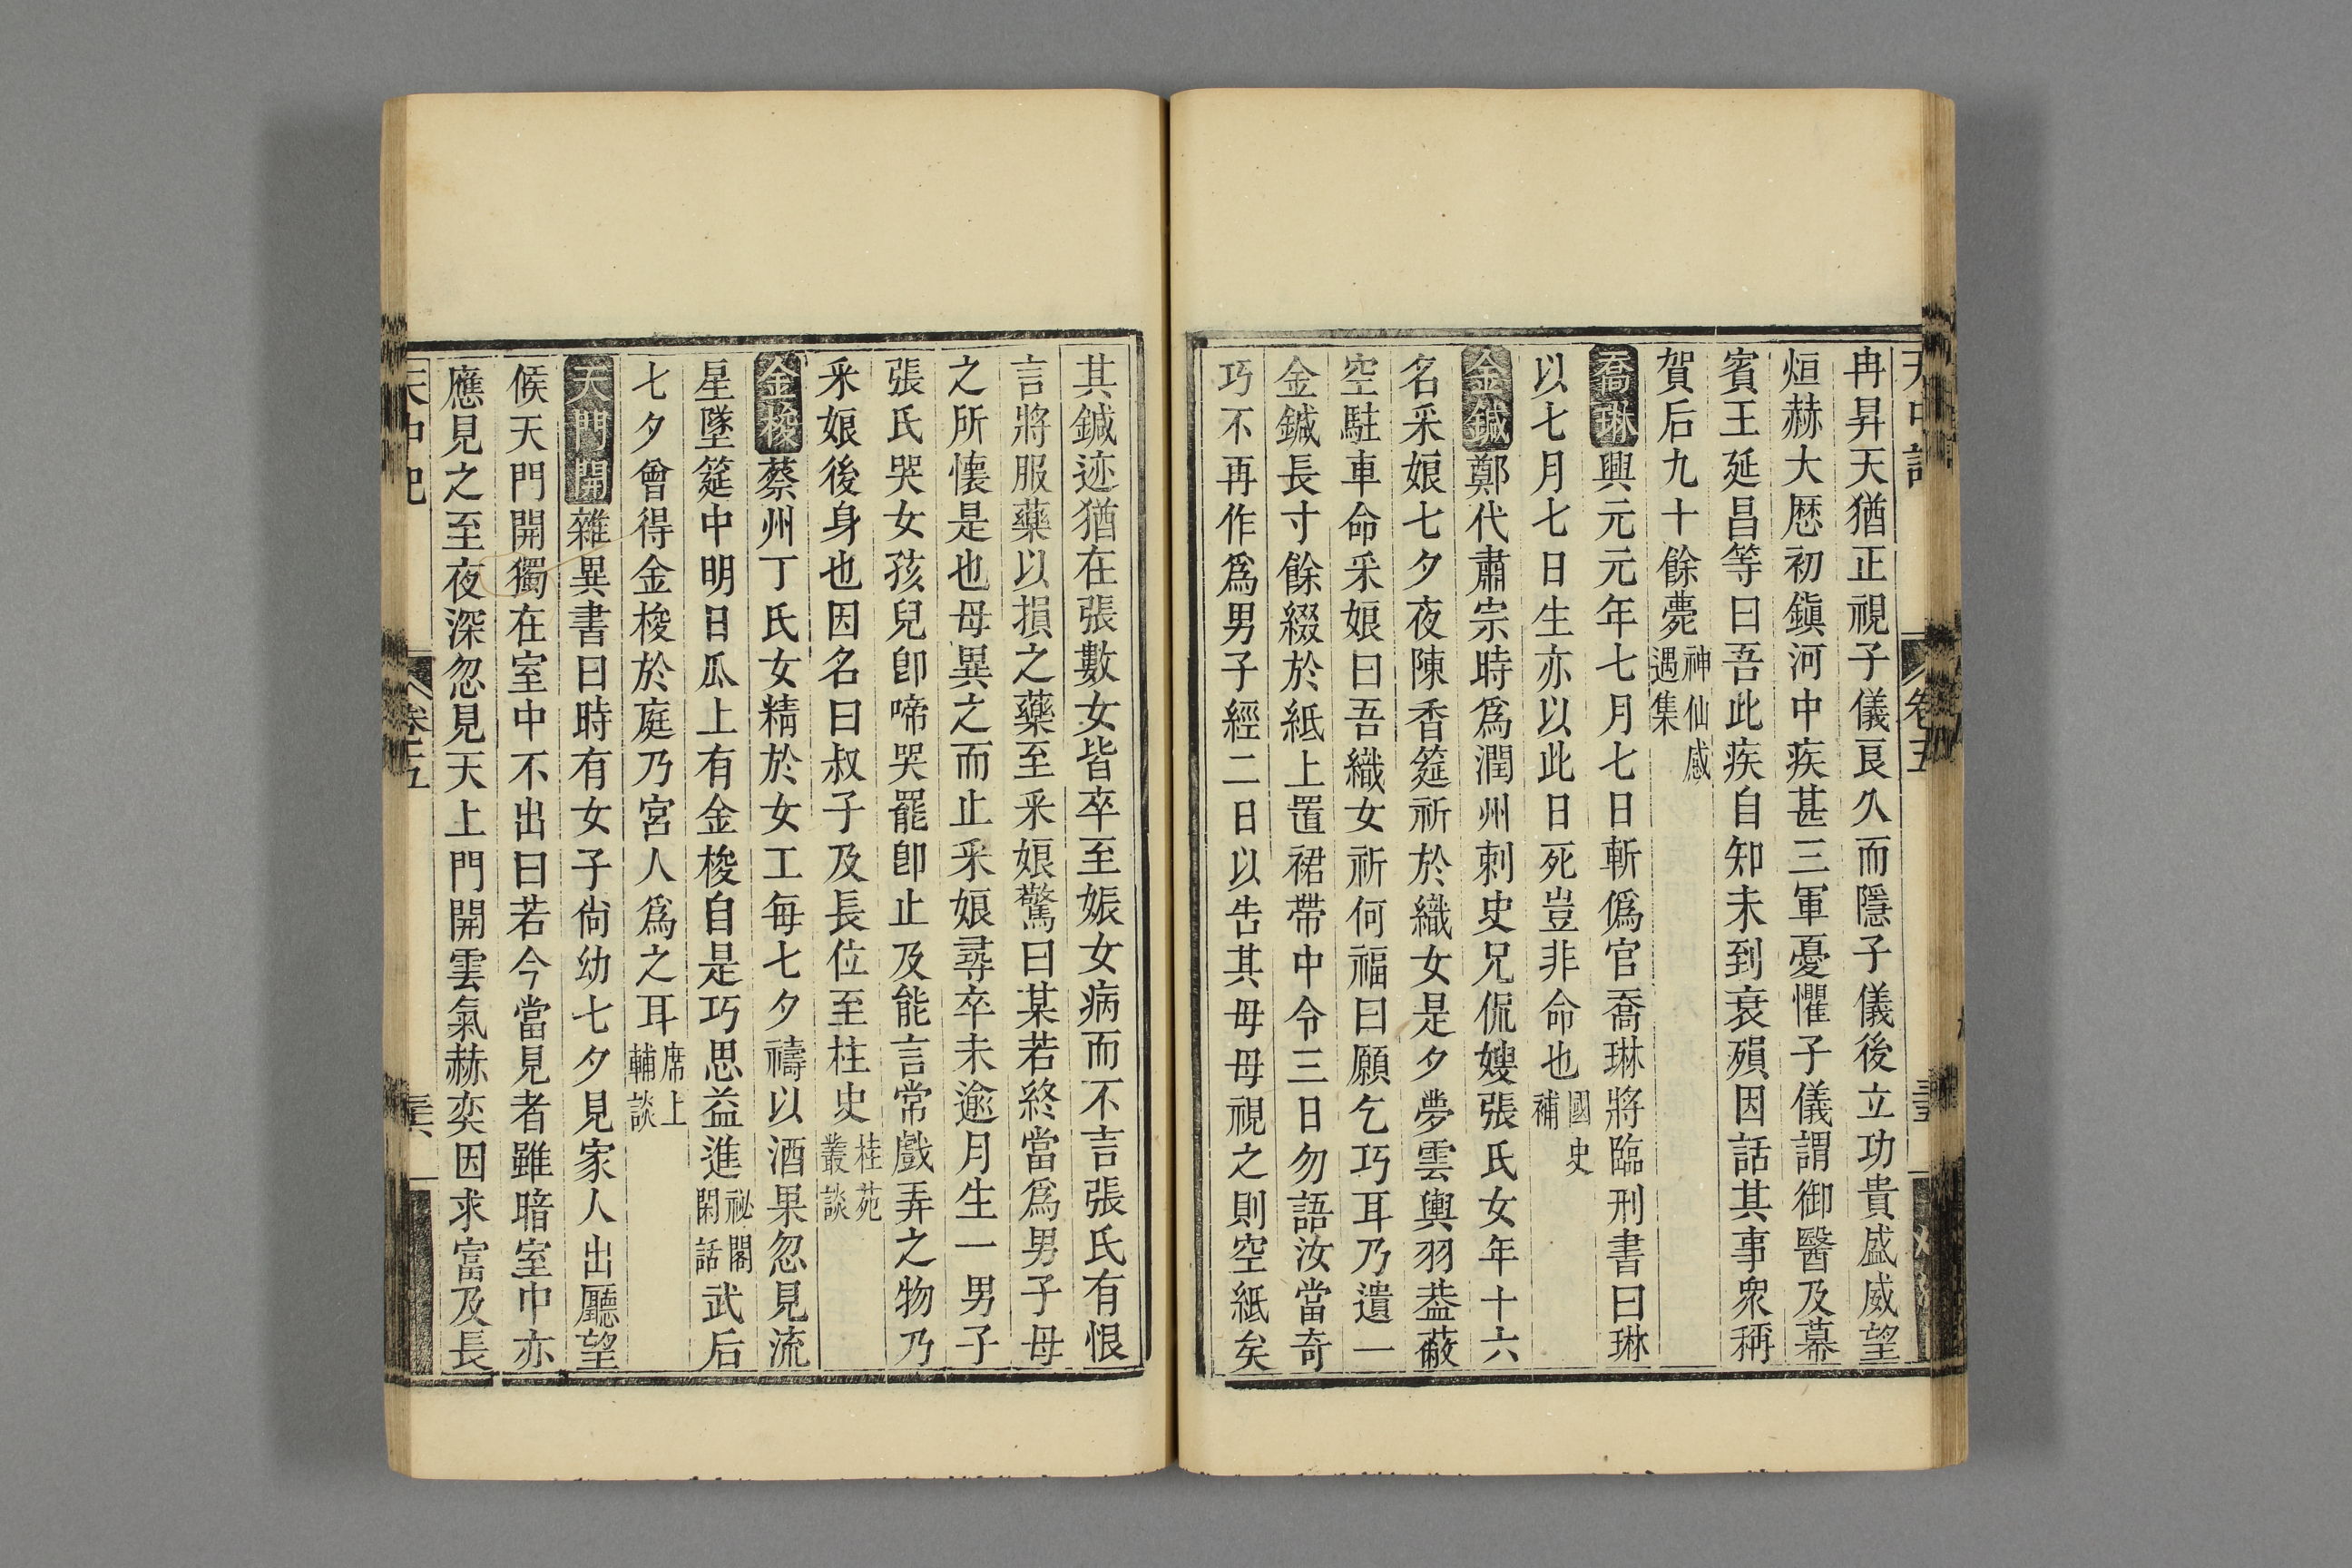 冉昇天猶正視子儀良久而隱子儀後立功貴盛威望
烜赫大厯初鎮河中疾甚三軍憂懼子儀謂御醫及幕
賓王延昌等曰吾此疾自知未到衰殞因話其事衆稱
賀后九十餘薨神仙感遇集
喬琳興元元年七月七日斬僞官喬琳將臨刑書曰琳
以七月七日生亦以此日死豈非命也國史補
金鍼鄭代肅宗時爲潤州刺史兄侃嫂張氏女年十六
名采娘七夕夜陳香筵祈於織女是夕夢雲輿羽葢蔽
空駐車命采娘曰吾織女祈何福曰願乞巧耳乃遺一
金鍼長寸餘綴於紙上置裙帶中令三日勿語汝當奇
巧不再作爲男子經二日以告其母母視之則空紙矣
其鍼迹猶在張數女皆卒至娠女病而不言張氏有恨
言將服藥以損之藥至采娘驚曰某若終當爲男子母
之所懷是也母異之而止采娘尋卒未逾月生一男子
張氏哭女孩兒卽啼哭罷卽止及能言常戲弄之物乃
采娘後身也因名曰叔子及長位至柱史桂苑叢談
金梭蔡州丁氏女精於女工每七夕禱以酒果忽見流
星墜筵中明日瓜上有金梭自是巧思益進祕閣閑話武后
七夕曾得金梭於庭乃宮人爲之耳席上輔談
天門開雜異書曰時有女子尙幼七夕見家人出廳望
候天門開獨在室中不出曰若今當見者雖暗室中亦
應見之至夜深忽見天上門開雲氣赫奕因求富及長
天中記
卷五